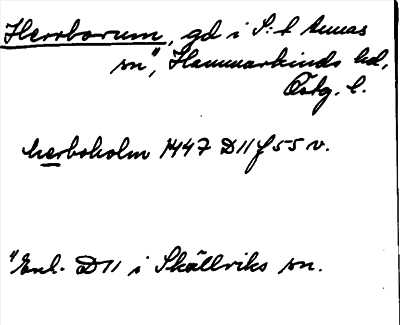 Herrborum, gd i S:t Annas
sn¹⁾, Hammarkinds hd,
Östg. l.
herboholm 1447 D11 f 55 v.
¹⁾ Enl. D11 i Skällviks sn.